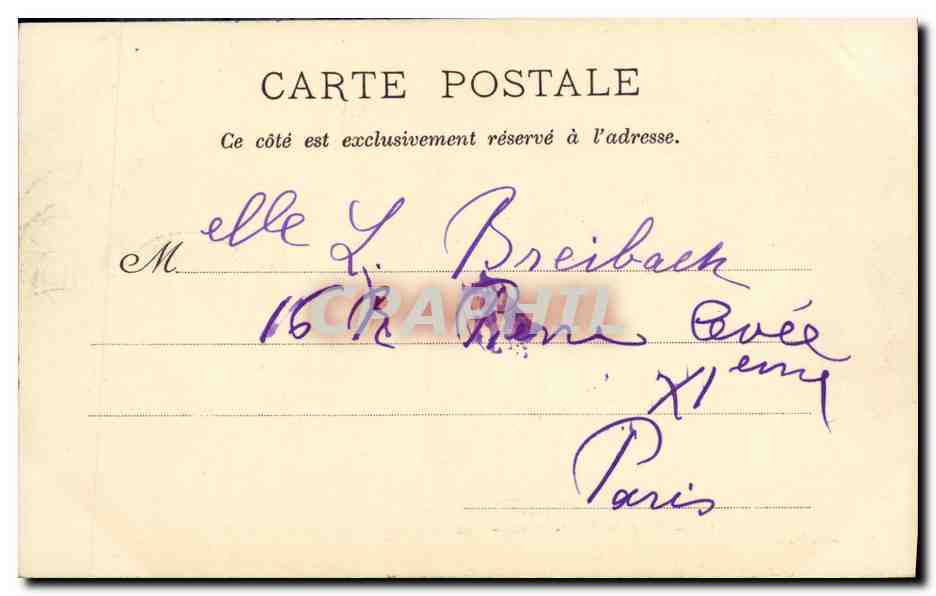 CARTE POSTALE
Ce côté est exclusivement réservé à l'adresse.
Melle L. Breibach
16 R. Pierre Levée
XIeme
Paris
CPAPHIL